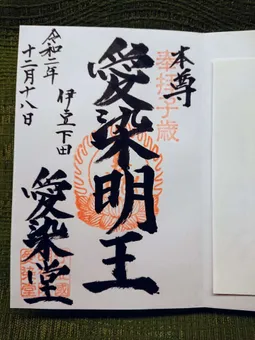 奉拝子歳
本尊
愛染明王
伊豆下田
愛染堂
令和二年
十二月十八日